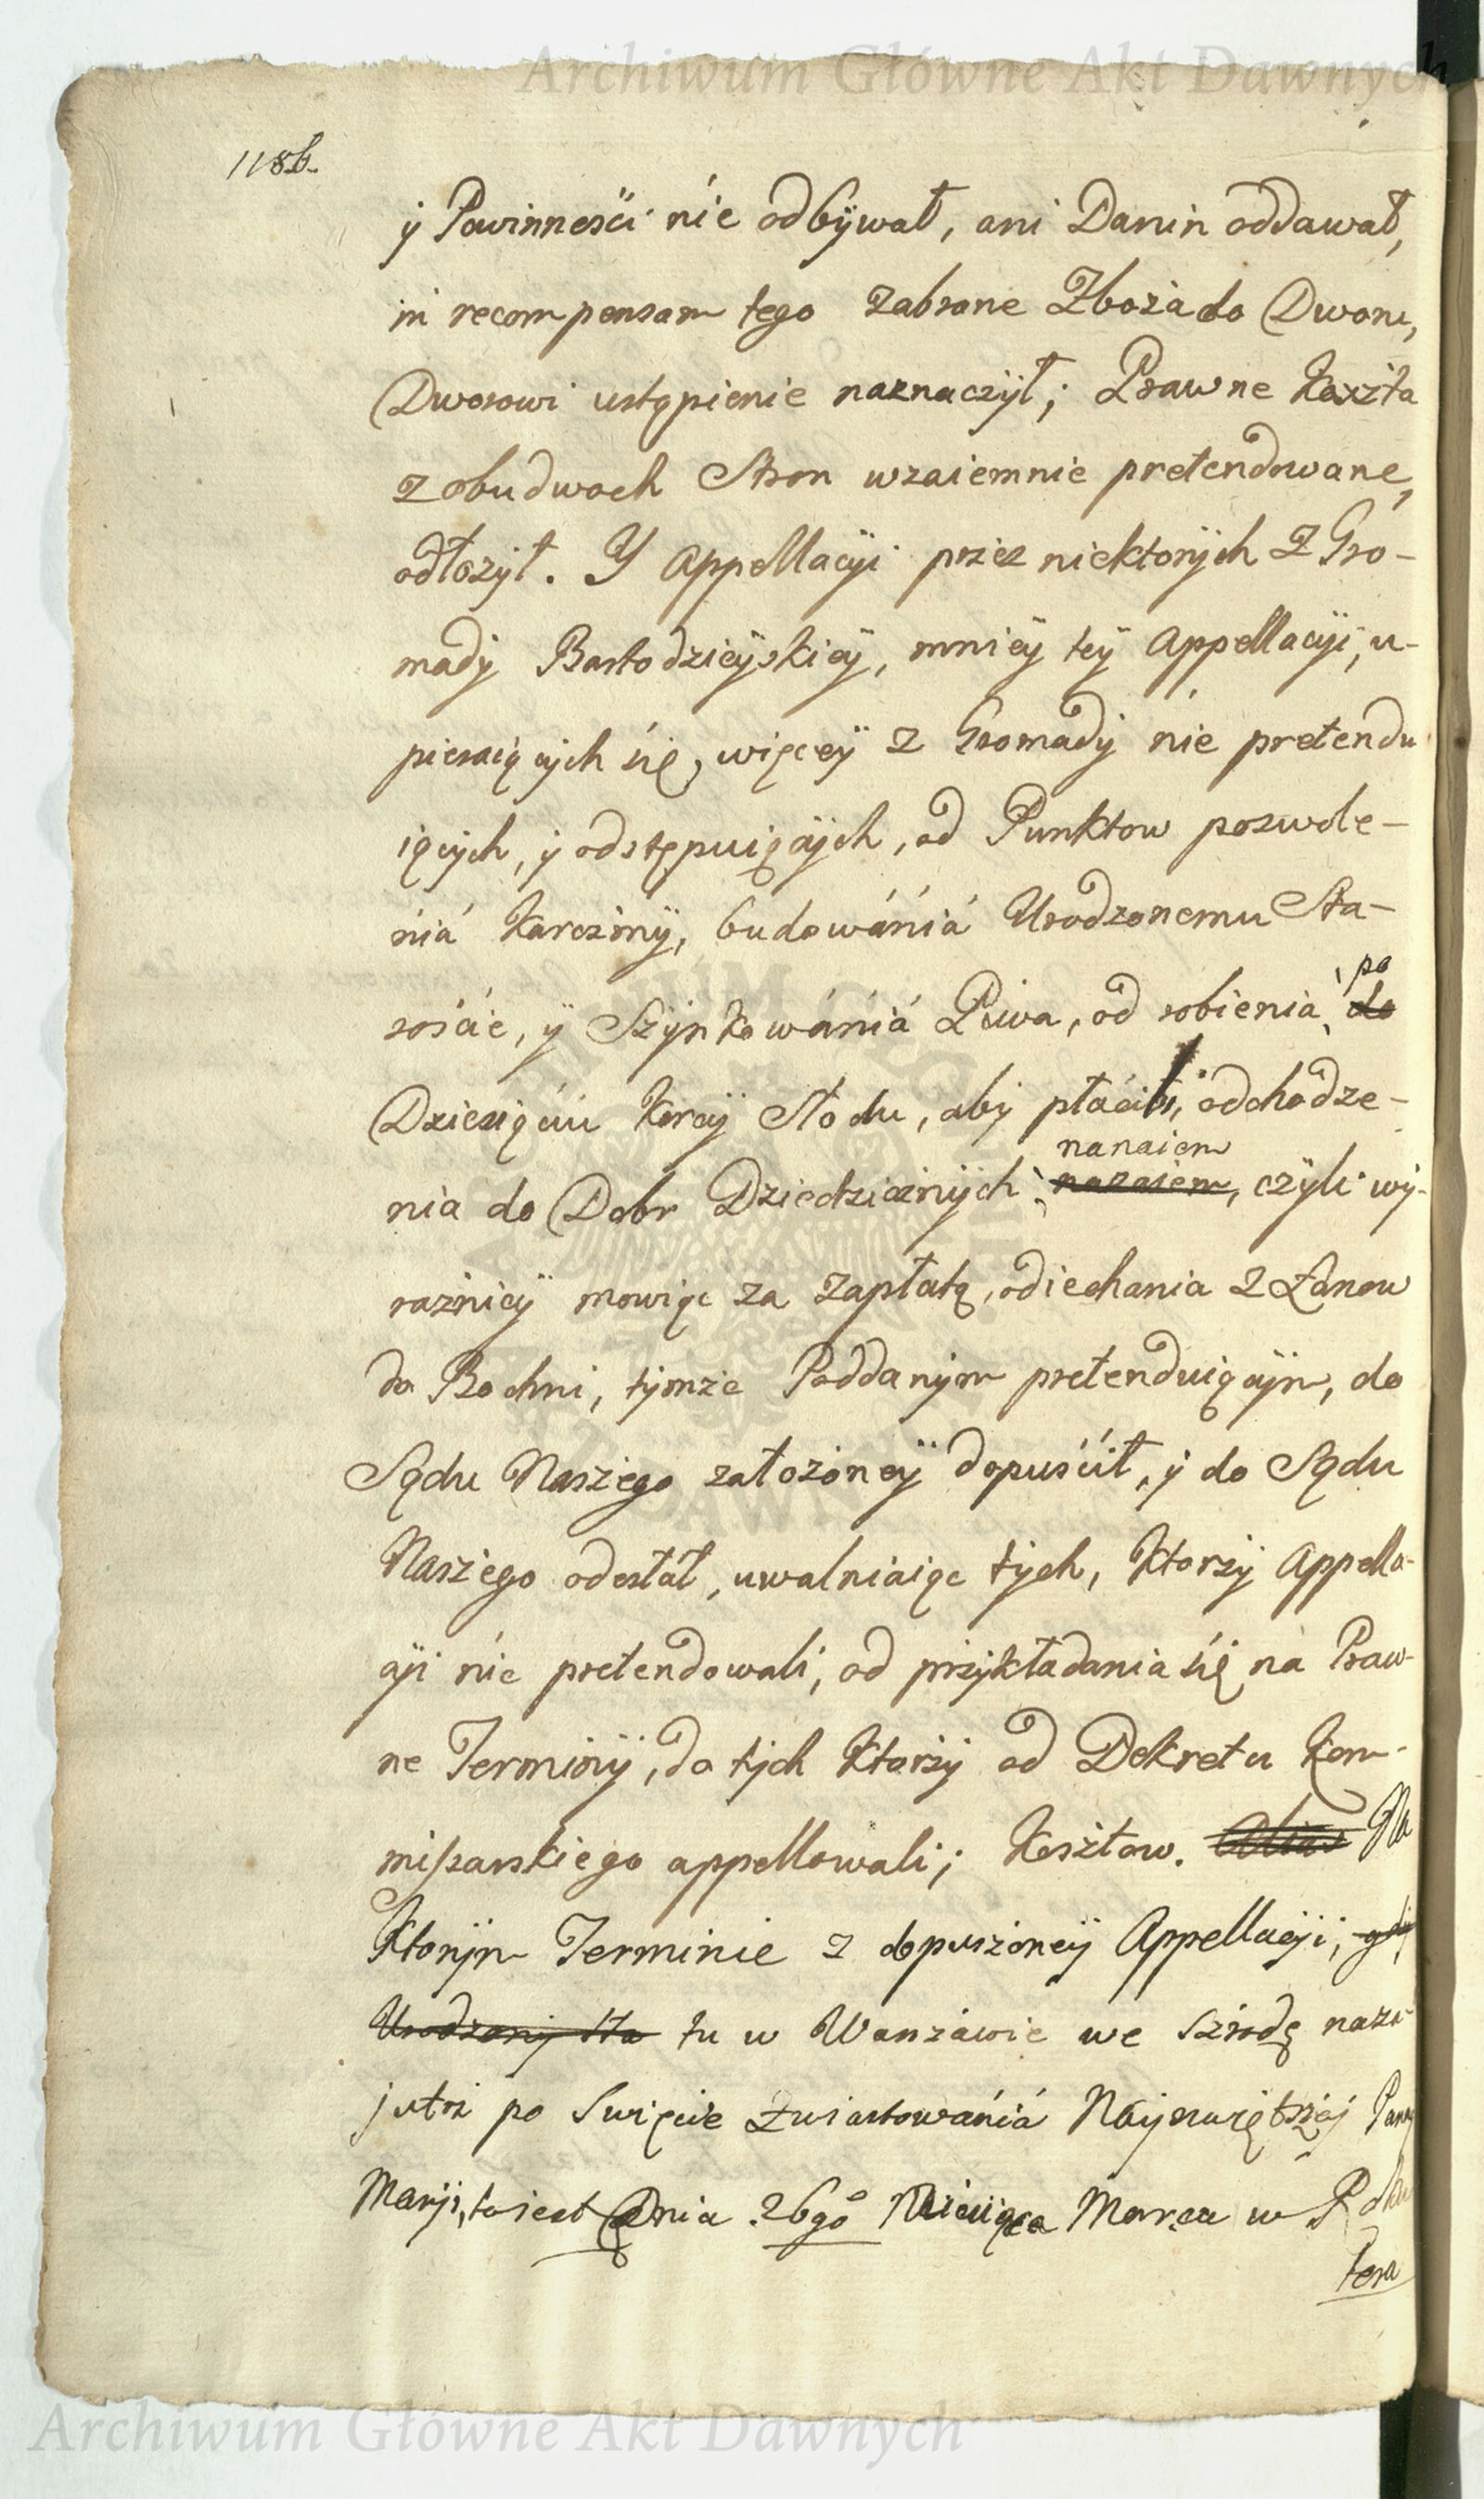 Archiwum Główne Akt Dawnych
118b.
ÿ Powinności nie odbÿwał, ani Danin oddawał,
in recompensam tego zabrane Zboża do Dworu,
Dworowi ustąpienie naznaczÿł; Prawne Koszta
z obudwoch Stron wzaiemnie pretendowane,
odłożÿł. Y Appellacÿi przez niektorÿch z Gro-
madÿ Bartodzieÿskieÿ, mnieÿ teÿ Appellacÿi, u-
pieraiącÿch się, więceÿ z Gromadÿ nie pretendu
iącÿch, ÿ odstępuiącÿch, od Punktow pozwole-
niá Karczmÿ, budowániá Urodzonemu Sta-
roście, ÿ Szÿnkowániá Piwa, od robienia, po do
Dziesięciu Korcÿ Słodu, abÿ płácił, odchodze-
nia do Dobr Dziedzicznÿch, nanaiem
nazaiem, czÿli wÿ-
raźnieÿ mowiąc za zapłatą, odiechania z Łanow
do Bochni, tÿmże Poddanÿm pretenduiącÿm, do
Sądu Naszego założoneÿ dopuścił, ÿ do Sądu
Naszego odesłał, uwalniaiąc tÿch, Ktorzÿ Appella-
cÿi nie pretendowali, od przÿkładania się na Praw-
ne Terminÿ, do tÿch Ktorzÿ od Dekretu Kom-
missarskiego appellowali; Kosztow. Na
Ktorÿm Terminie z dopuszczoneÿ Appellacÿi, gdÿ
Urodzonÿ Sta tu w Warszáwie we Szrodę naza-
jutrz po Swięcie Zwiastowániá Nayswiętszej Pannÿ
Marÿi, to iest Dnia 26go Miesiąca Marca w Roku
tera
Archiwum Główne Akt Dawnych